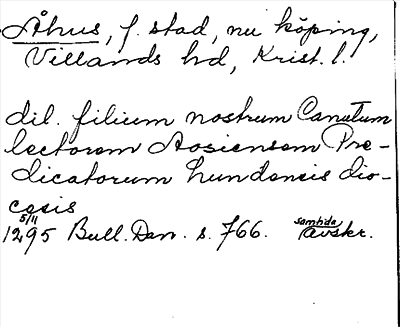 Åhus, f. stad, nu köping,
Villands hd, Krist. l.
dil. filium nostrum Canutum
lectorem Aosiensem Pre-
dicatorum Lundensis dio-
cesis
5/11
1295 Bull. Dan. s. 766. samtida avskr.